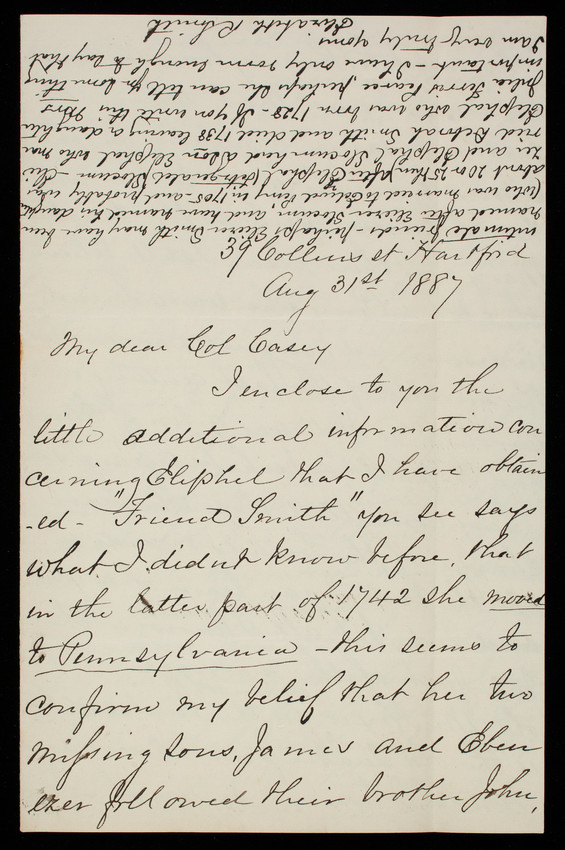 39 Collins st Hartford
Aug 31st 1887
My dear Col Casey
I enclose to you the
little additional information con
cerning Eliphel that I have obtain
-ed - "Friend Smith" you see says
what I didn't know before, that
in the latter part of 1742 she moved
to Pennsylvania - this seems to
confirm my belief that her two
missing sons, James and Eben
ezer followed their brother John,
intimate friends - perhaps Eliezer Smith may have been
named after Eliezer Slocum and have named his daughter
(who was married to Perry in 1705 and probably was
about 20 or 25 then) after Eliphel Slocum - Elie
zer and Eliphel Slocum had a son Eliphel who mar
ried Deborah Smith and died 1738 leaving a daughter
Eliphel who was born 1728 - If you write this Mrs
Julia Ferris Pearce, perhaps she can tell you something
important - I have only room enough to say that
I am very truly yours
Elizabeth R Smith